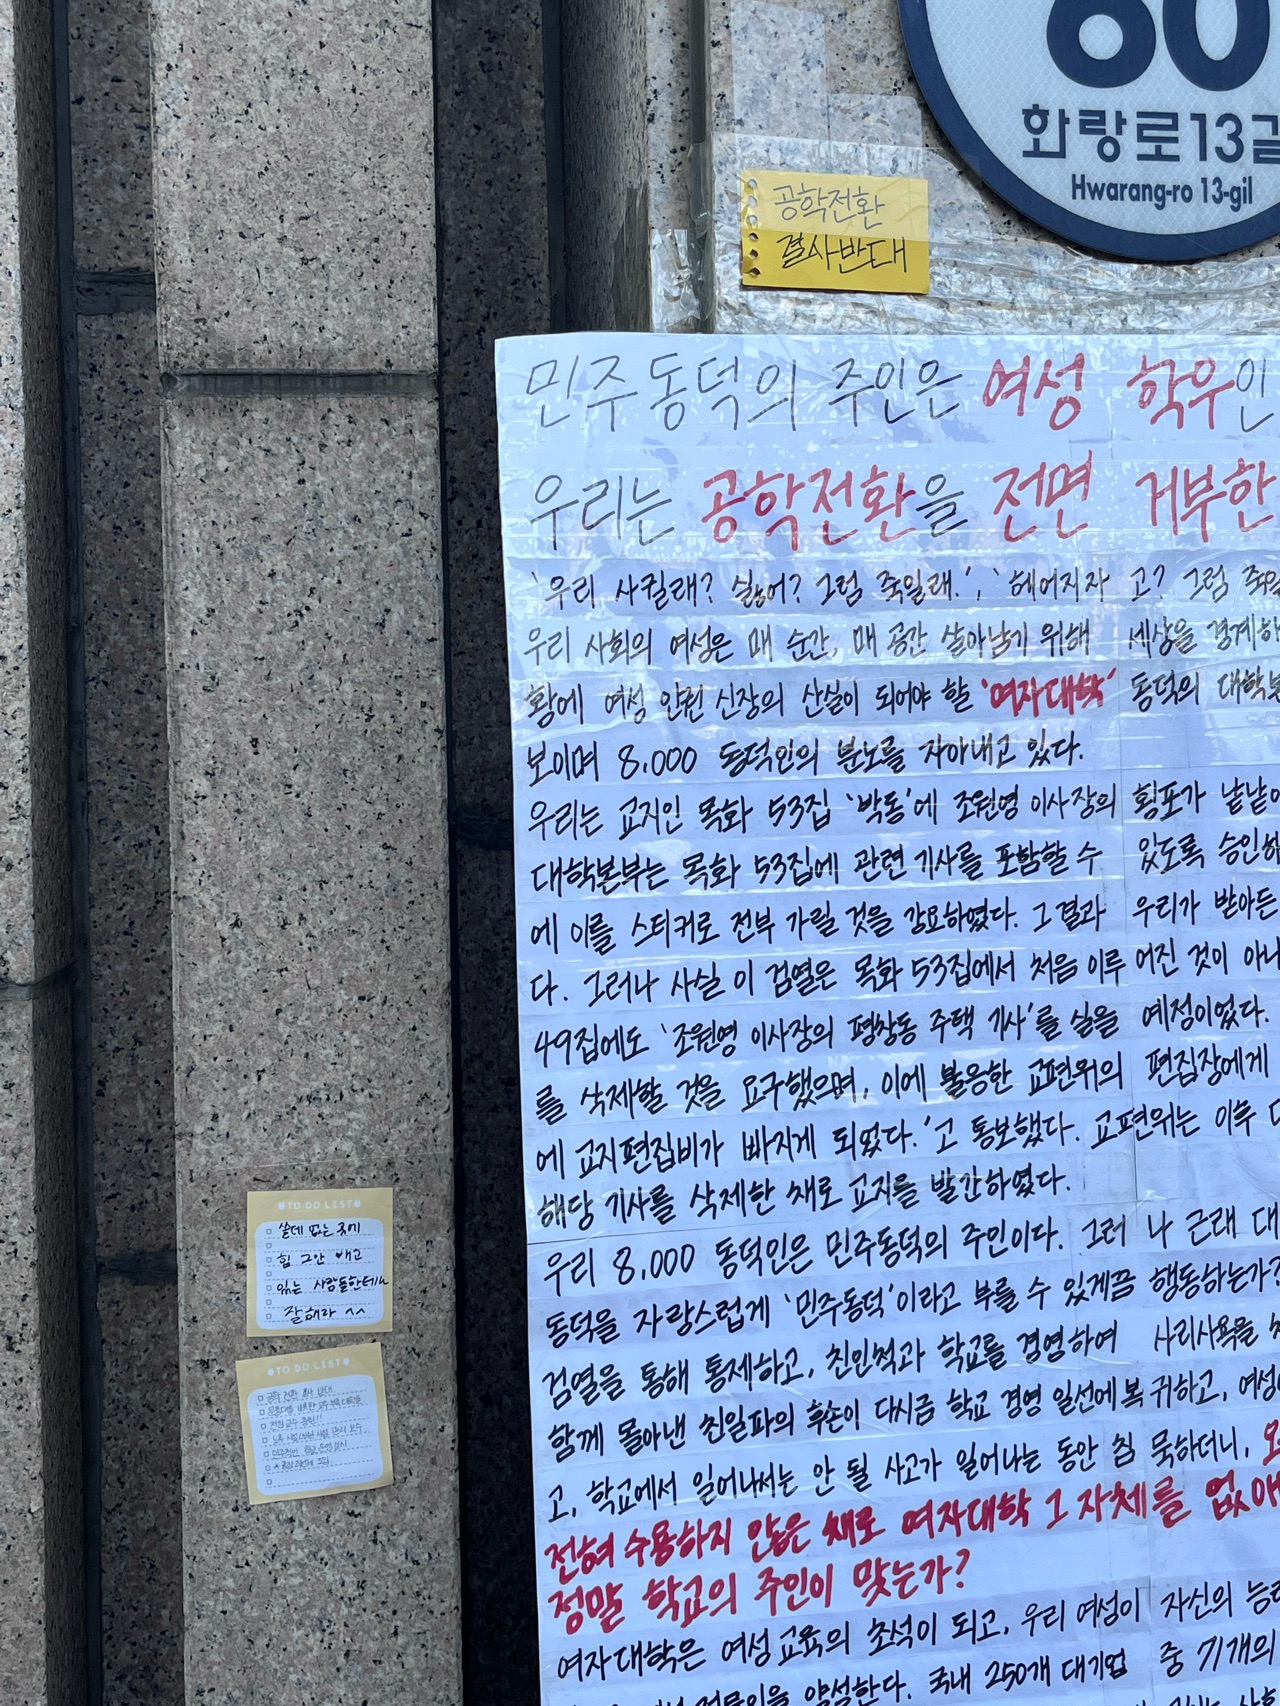 60
화랑로13길
Hwarang-ro 13-gil
공학전환
결사반대
민주동덕의 주인은 여성 학우인
우리는 공학전환을 전면 거부한
'우리 사귈래? 싫어? 그럼 죽일래.', '헤어지자고? 그럼 죽일
우리 사회의 여성은 매 순간, 매 공간 살아남기 위해 세상을 경계하
황에 여성 인권 신장의 산실이 되어야 할 '여자대학' 동덕의 대학본
보이며 8,000 동덕인의 분노를 자아내고 있다.
우리는 교지인 목화 53집 '박동'에 조원영 이사장의 횡포가 낱낱이
대학본부는 목화 53집에 관련 기사를 포함할 수 있도록 승인하
에 이를 스티커로 전부 가릴 것을 강요하였다. 그 결과 우리가 받아든
다. 그러나 사실 이 검열은 목화 53집에서 처음 이루어진 것이 아니
49집에도 '조원영 이사장의 평창동 주택 기사'를 실을 예정이었다.
를 삭제할 것을 요구했으며, 이에 불응한 교편위의 편집장에게
에 교지편집비가 빠지게 되었다.'고 통보했다. 교편위는 이후
해당 기사를 삭제한 채로 교지를 발간하였다.
우리 8,000 동덕인은 민주동덕의 주인이다. 그러나 근래 대
동덕을 자랑스럽게 '민주동덕'이라고 부를 수 있게끔 행동하는가?
검열을 통해 통제하고, 친인척과 학교를 경영하여 사리사욕을
함께 몰아낸 친일파의 후손이 다시금 학교 경영 일선에 복귀하고, 여성
고, 학교에서 일어나서는 안 될 사고가 일어나는 동안 침묵하더니,
전혀 수용하지 않은 채로 여자대학 그 자체를 없애
정말 학교의 주인이 맞는가?
여자대학은 여성 교육의 초석이 되고, 우리 여성이 자신의 능력
전문인을 양성한다. 국내 250개 대기업 중 71개의
TO DO LIST
쓸데 없는 곳에
힘 그만 빼고
있는 사람들한테나
잘해라 ^^
TO DO LIST